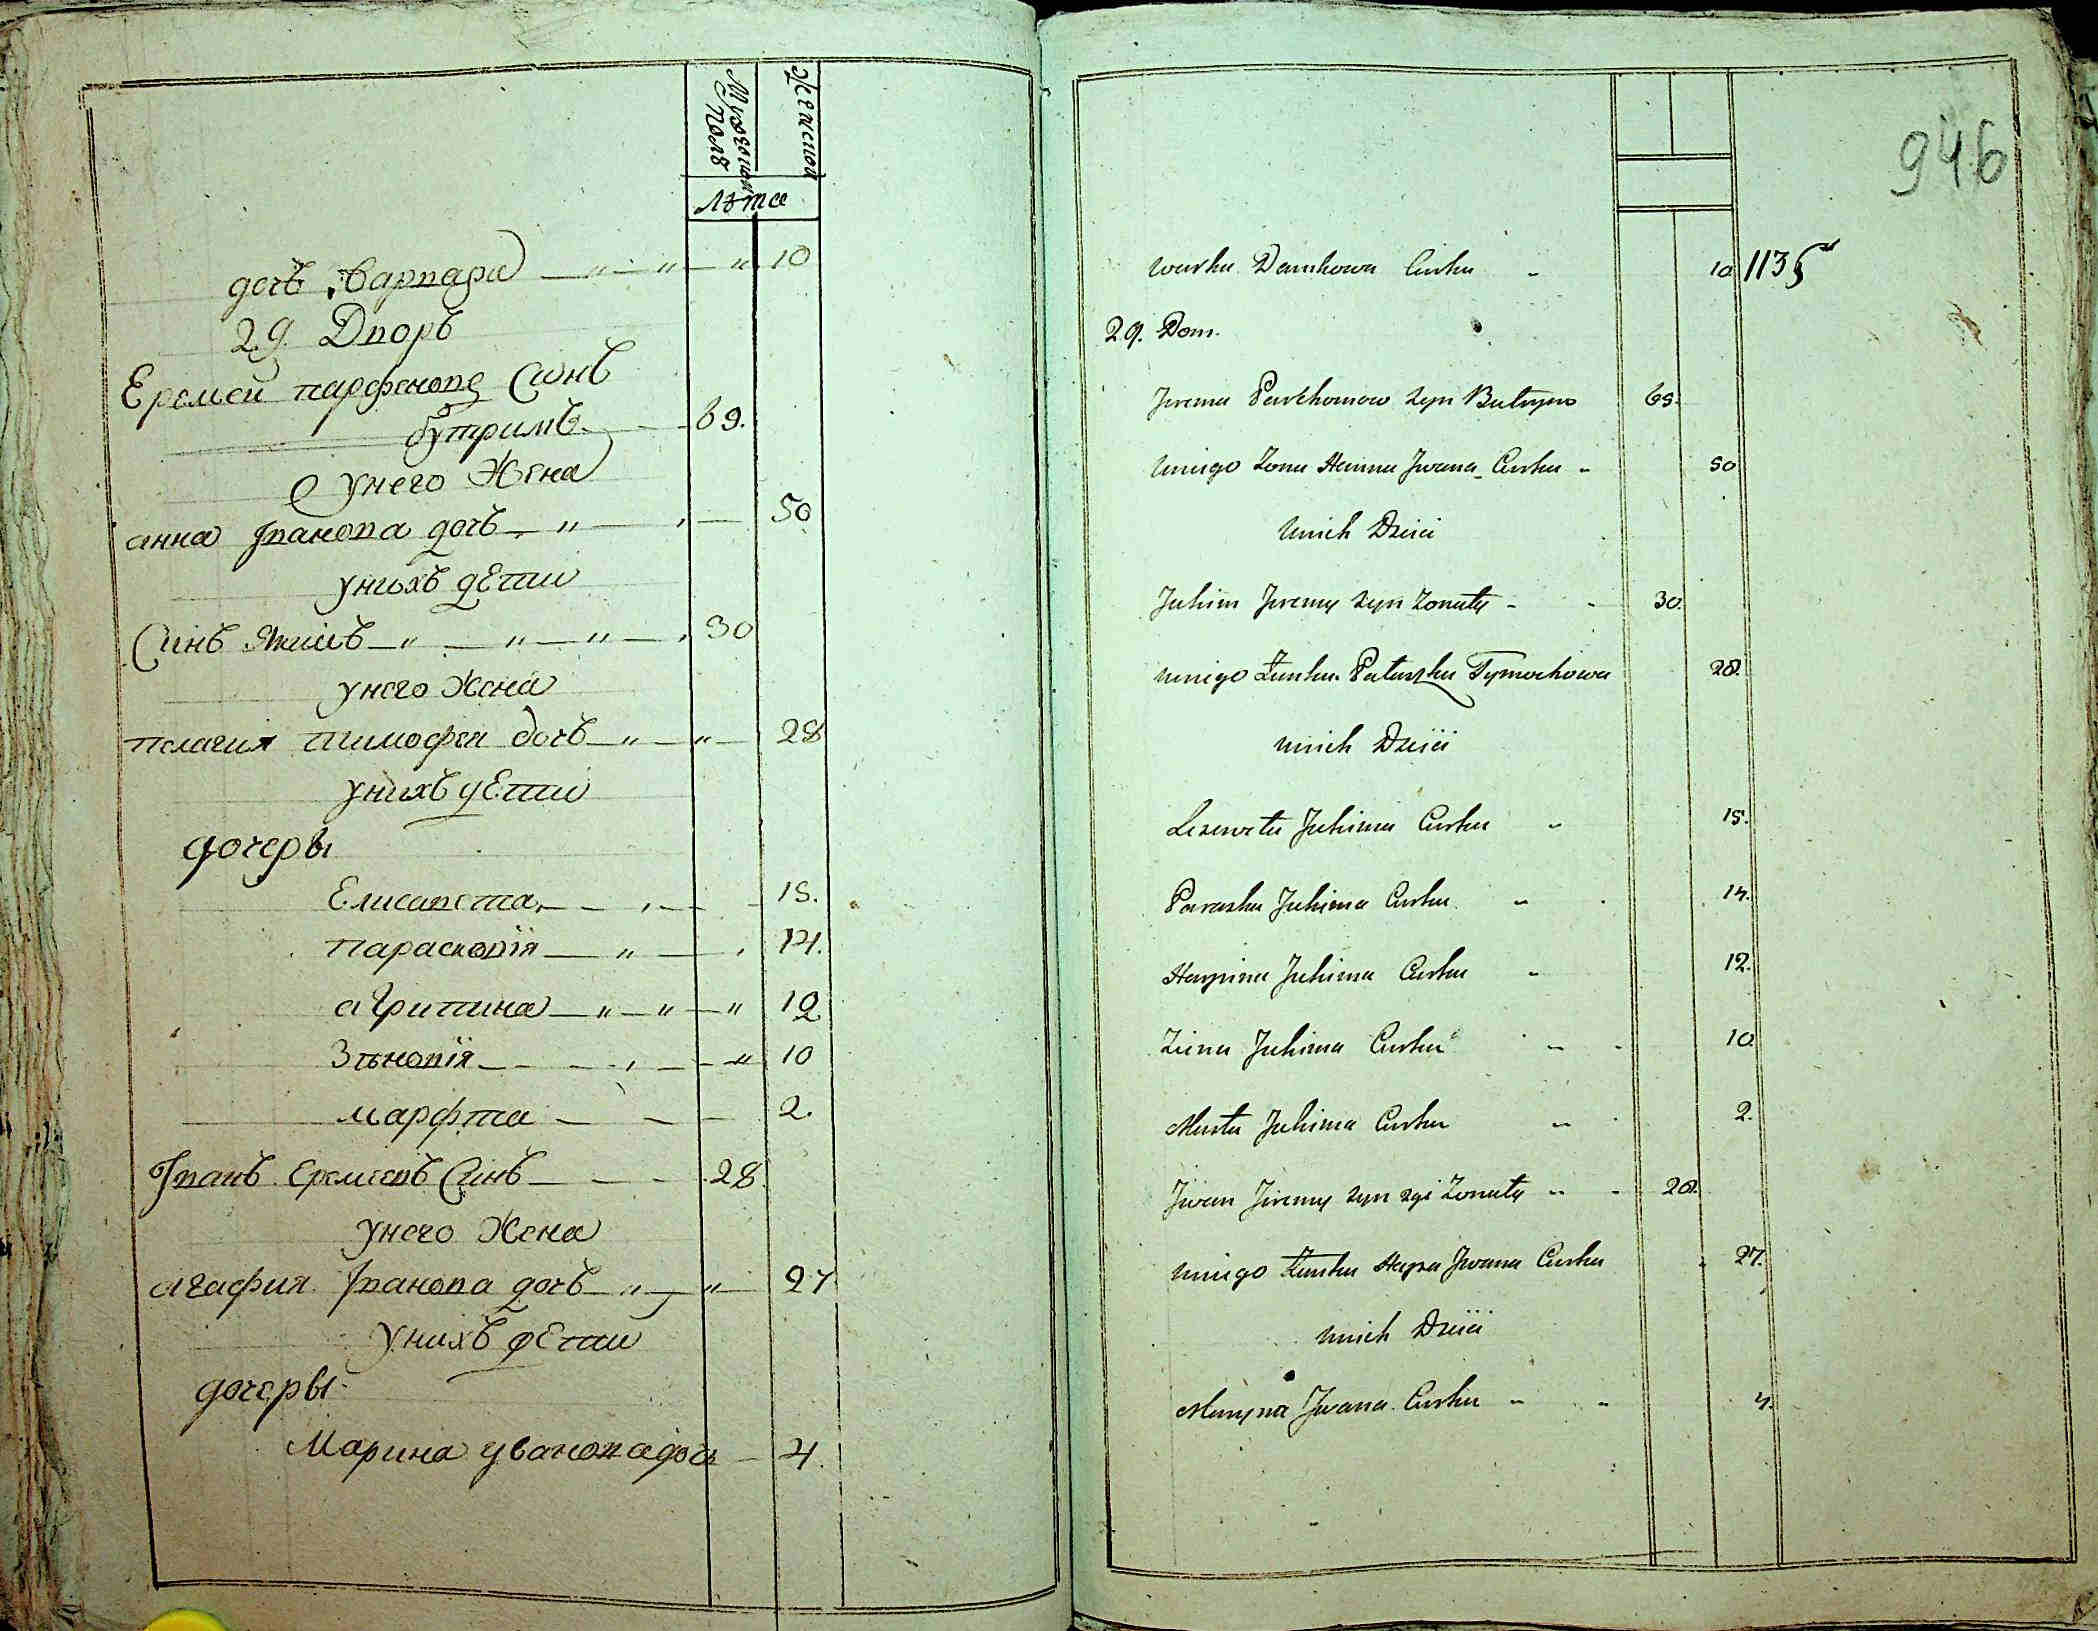 Мужеской Полъ
Женской
Лѣта
дочь Варвара 10
29. Дворъ
Еремей Парфеновъ Синъ
бутримъ 69.
Унего Жена
анна Іванова дочь 50
унихъ дѣти
Синъ Якимъ 30
унего Жена
Пелагия тимофея дочь 28
унихъ дѣти
дочеры
Елисавета 15.
Парасковія 14.
агрипина 12
Зѣновія 10
марфта 2.
Іванъ Еремѣевъ Синъ 28
унего Жена
агафия Іванова дочь 27
унихъ дѣти
дочеры
Марина уванова дочь 4.
946
Warka Damkowa Curka 10 1135
29. Dom.
Jrema Parchomow Syn Butrym 69.
Uniego Zona Hanna Jwana Curka 50
Unich Dzieci
Juhim Jremy Syn Zonaty 30.
Uniego Zonka Pałaszka Tymochowa 28.
Unich Dzieci
Lizeweta Juhima Curka 15.
Paraska Juhima Curka 14.
Harpina Juhima Curka 12.
Zina Juhima Curka 10
Marta Juhima Curka 2.
Jwan Jremy Syn Zonaty 28.
Uniego Zonka Hapa Jwana Curka 27.
Unich Dzieci
Maryna Jwana Curka 4.